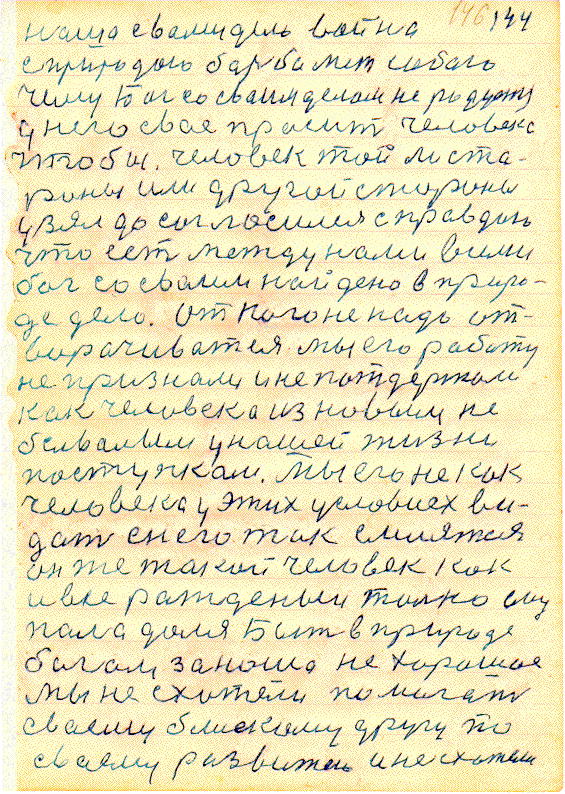 146 144
наша с вами дель война
с природою борьба мет собою
чему Бог со сваим делом не радуетя
у него свае просит человека
чтобы, человек той ли ста-
роны или другой стороны
узял да согласился справдою
что ест между нами всими
бог со сваим найдено в приро-
де дело. От кого не надь от-
ворачиватся мы его работу
не признали и не потдержали
как человека из новым не
бывалым у нашей жизни
поступкам. Мы его не как
человека у этих условиех ви-
дат с него так смиятся
он же такой человек как
и все рожденыи толко ему
пала доля Быт в природе
богом за наша не хорошае
мы не схотели помогат
сваему блискому другу по
сваему развитею и не схотели